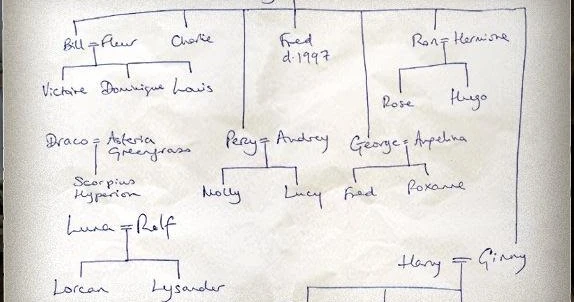 Bill = Fleur Charlie Fred Ron = Hermione
d. 1997
Victoire Dominique Louis
Rose Hugo
Draco = Asteria Percy = Audrey George = Angelina
Greengrass
Scorpius
Hyperion Molly Lucy Fred Roxanne
Luna = Rolf
Harry = Ginny
Lorcan Lysander